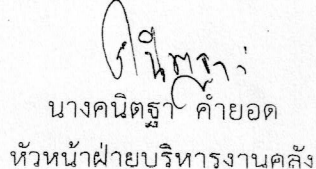 คนิตฐา
นางคนิตฐา คำยอด
หัวหน้าฝ่ายบริหารงานคลัง